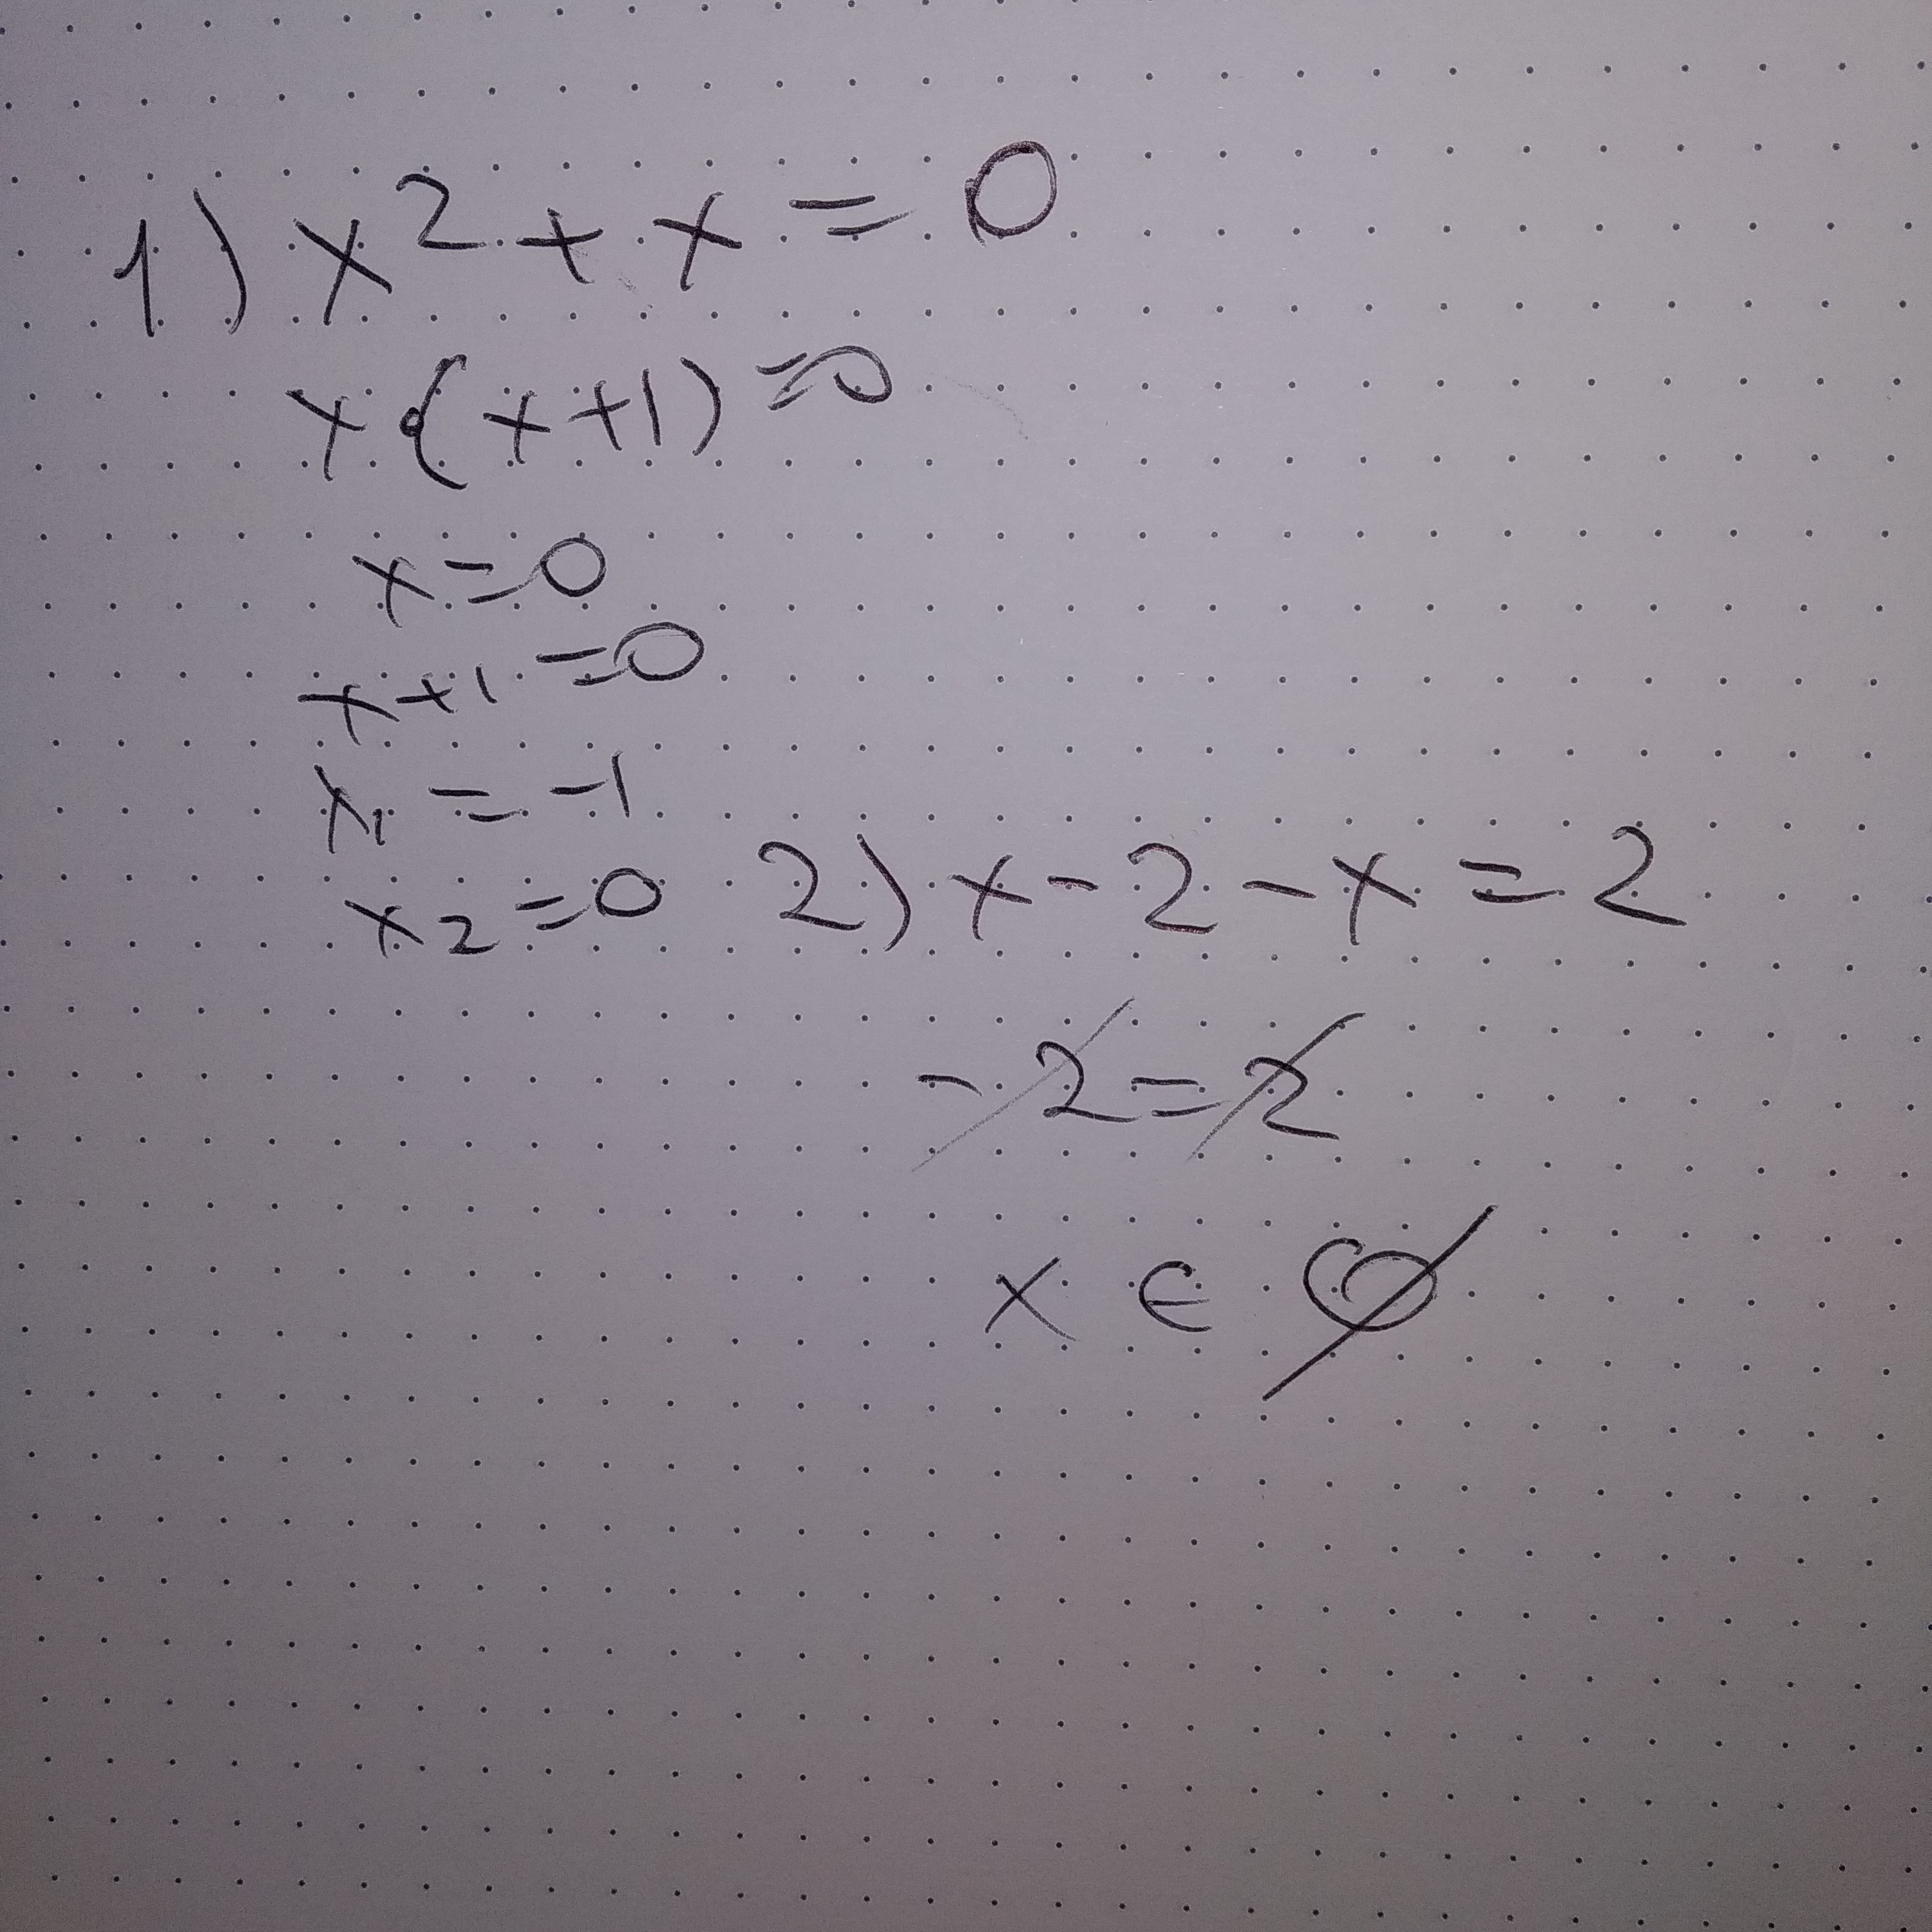 1) x² + x = 0
x(x+1)=0
x=0
x+1=0
x₁ = -1
x₂=0
2) x-2-x=2
-2=2
x ∈ ∅